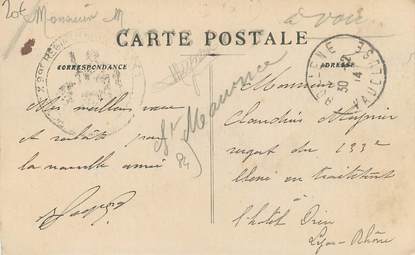 20f Monsieur M
à voir
CARTE POSTALE
CORRESPONDANCE
ADRESSE
BOLLENE
VAUCLUSE
30 -12
14
Mes meilleurs vœux
et souhaits pour
la nouvelle année
St Maurice
84
Monsieur
Claudius
sergent du 133e
en traitement
à
l'hôtel Dieu
Lyon-Rhône